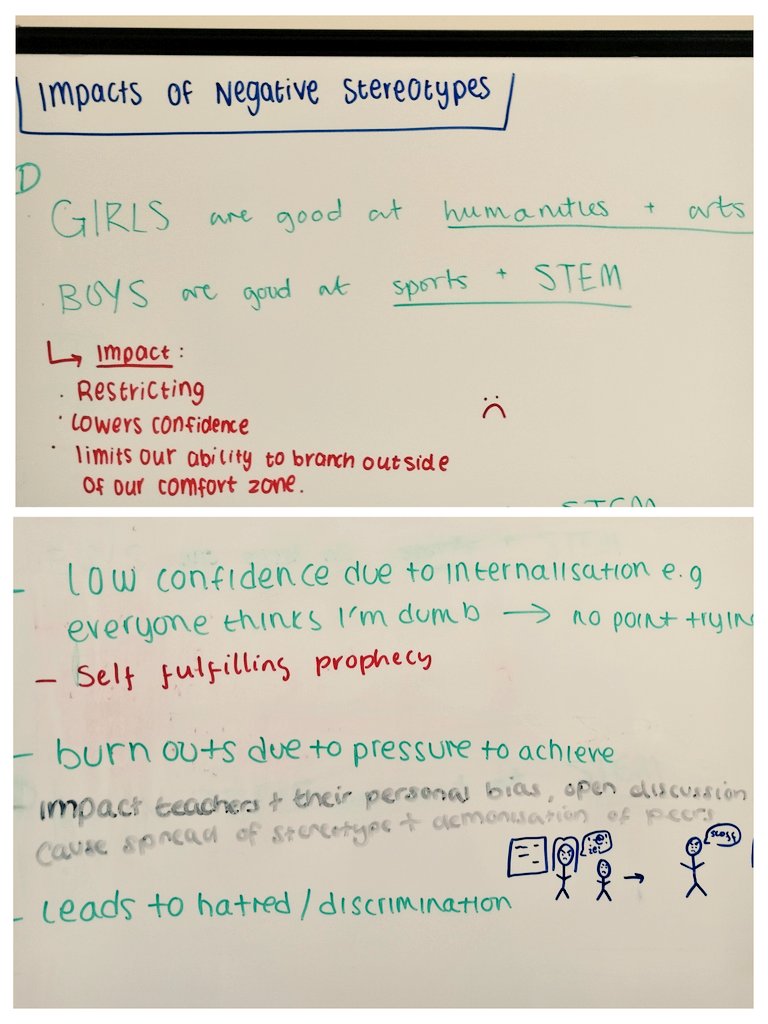 Impacts of Negative Stereotypes
D
· GIRLS are good at humanities + arts
· BOYS are good at sports + STEM
↳ Impact:
· Restricting
· Lowers confidence
· limits our ability to branch outside
of our comfort zone.
STEM
- low confidence due to internalisation e.g
everyone thinks I'm dumb → no point trying
- Self fulfilling prophecy
- burn outs due to pressure to achieve
- impact teachers + their personal bias, open discussion
cause spread of stereotype + demonisation of peers
- Leads to hatred / discrimination